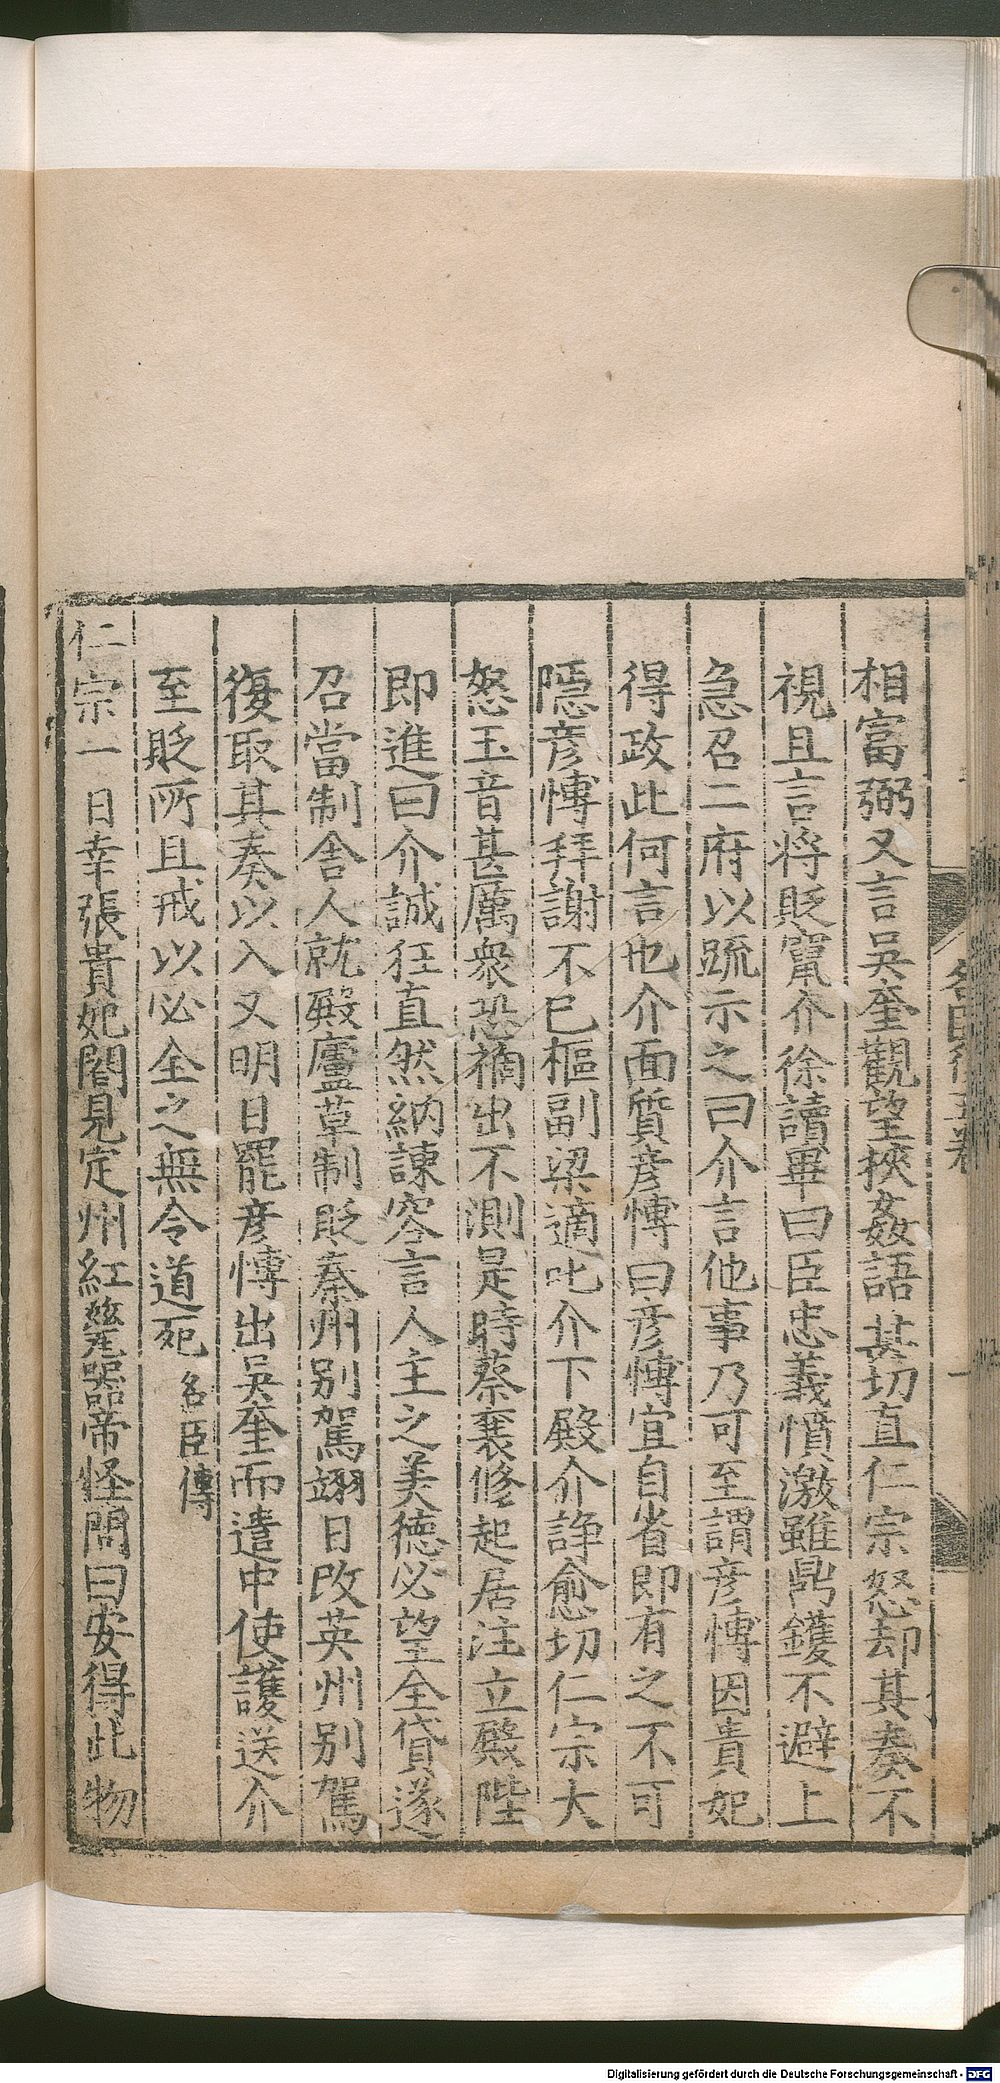 相富弼又言吳奎觀望挾姦語甚切直仁宗怒却其奏不
視且言將貶竄介徐讀畢曰臣忠義憤激雖鼎鑊不避上
急召二府以疏示之曰介言他事乃可至謂彦愽因貴妃
得政此何言也介面質彦愽曰彦愽宜自省即有之不可
隱彦愽拜謝不已樞副梁適叱介下殿介諍愈切仁宗大
怒玉音甚厲衆恐禍出不測是時蔡襄修起居注立殿陛
即進曰介誠狂直然納諌容言人主之美德必望全貸遂
召當制舍人就殿廬草制貶秦州别駕翊日改英州别駕
復取其奏以入又明日罷彦愽出吳奎而遣中使護送介
至貶所且戒以必全之無令道死 名臣傳
仁宗一日幸張貴妃閤見定州紅甆器帝怪問曰安得此物
Digitalisierung gefördert durch die Deutsche Forschungsgemeinschaft - DFG